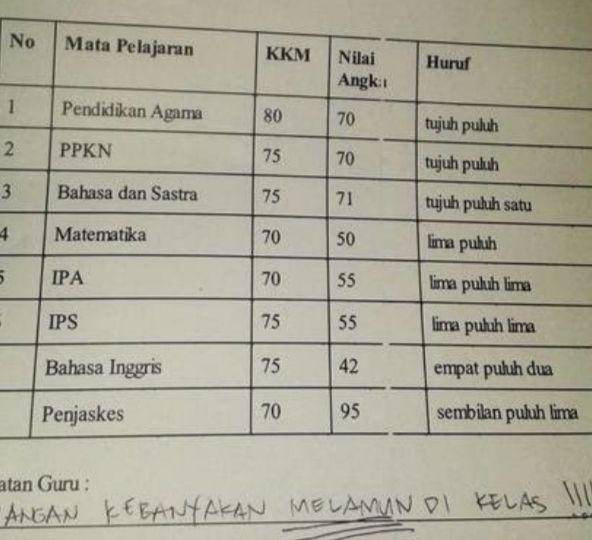 No Mata Pelajaran KKM Nilai Angka Huruf
1 Pendidikan Agama 80 70 tujuh puluh
2 PPKN 75 70 tujuh puluh
3 Bahasa dan Sastra 75 71 tujuh puluh satu
4 Matematika 70 50 lima puluh
5 IPA 70 55 lima puluh lima
IPS 75 55 lima puluh lima
Bahasa Inggris 75 42 empat puluh dua
Penjaskes 70 95 sembilan puluh lima
atan Guru :
ANGAN KEBANYAKAN MELAMUN DI KELAS !!!!